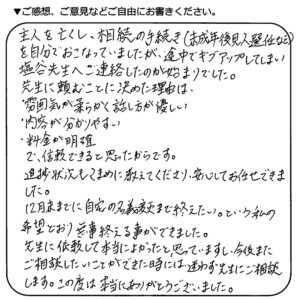 ▼ご感想、ご意見などご自由にお書きください。
主人を亡くし、相続の手続き(未成年後見人選任など)
を自分でおこなっていましたが、途中でギブアップしてしまい
塩谷先生へご連絡したのが始まりでした。
先生に頼むことに決めた理由は、
・雰囲気が柔らかく話し方が優しい
・内容が分かりやすい
・料金が明確
で、信頼できると思ったからです。
進捗状況もこまめに教えてくださり、安心してお任せできま
した。
12月末までに自宅の名義変更まで終えたい。という私の
希望どおり無事終える事ができました。
先生に依頼して本当によかったと思っていますし、今後また
ご相談したいことができた時には迷わず先生にご相談
します。この度は本当にありがとうございました。